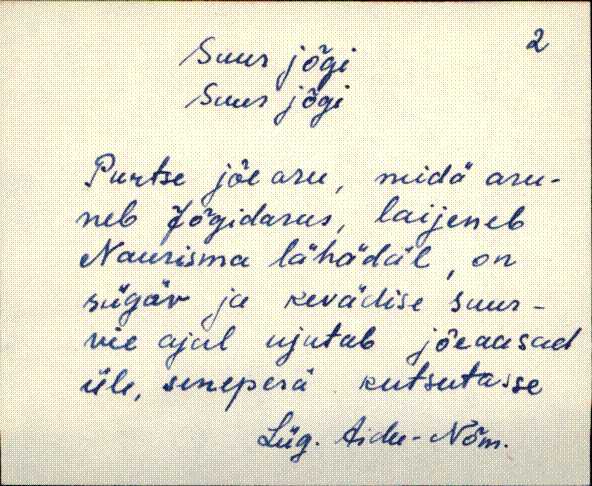 2
Suur jõgi
Suur jõgi
Purtse jõe aru, midä aru-
neb Jõgidarus, laijeneb
Naurisma lähädäl, on
sügäv ja kevädise suur-
vie ajal ujutab jõeaasad
üle, seneperä kutsutasse
Lüg. Aidu-Nõm.